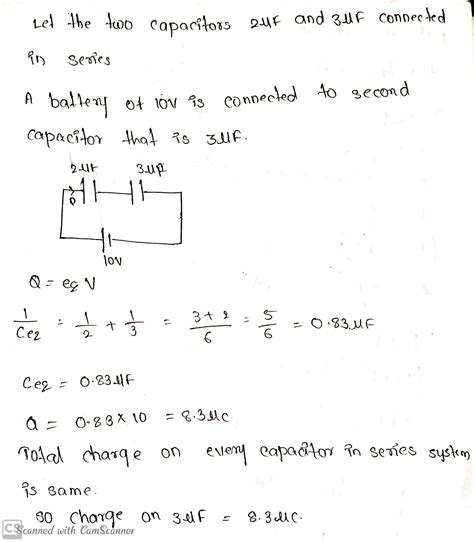 Let the two capacitors 2µF and 3µF connected
in series
A battery of 10V is connected to second
capacitor that is 3µF.
2µF 3µF
10V
Q = eq V
1/Ceq = 1/2 + 1/3 = 3+2/6 = 5/6 = 0.83µF
Ceq = 0.83µF
Q = 0.83 × 10 = 8.3µC
Total charge on every capacitor in series system
is same.
so charge on 3µF = 8.3µC.
CS Scanned with CamScanner